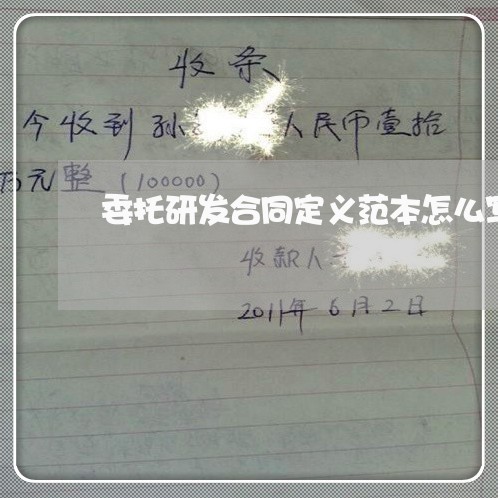 收条
今收到孙 人民币壹拾
万元整(100000)
委托研发合同定义范本怎么写
收款人
2011年6月2日